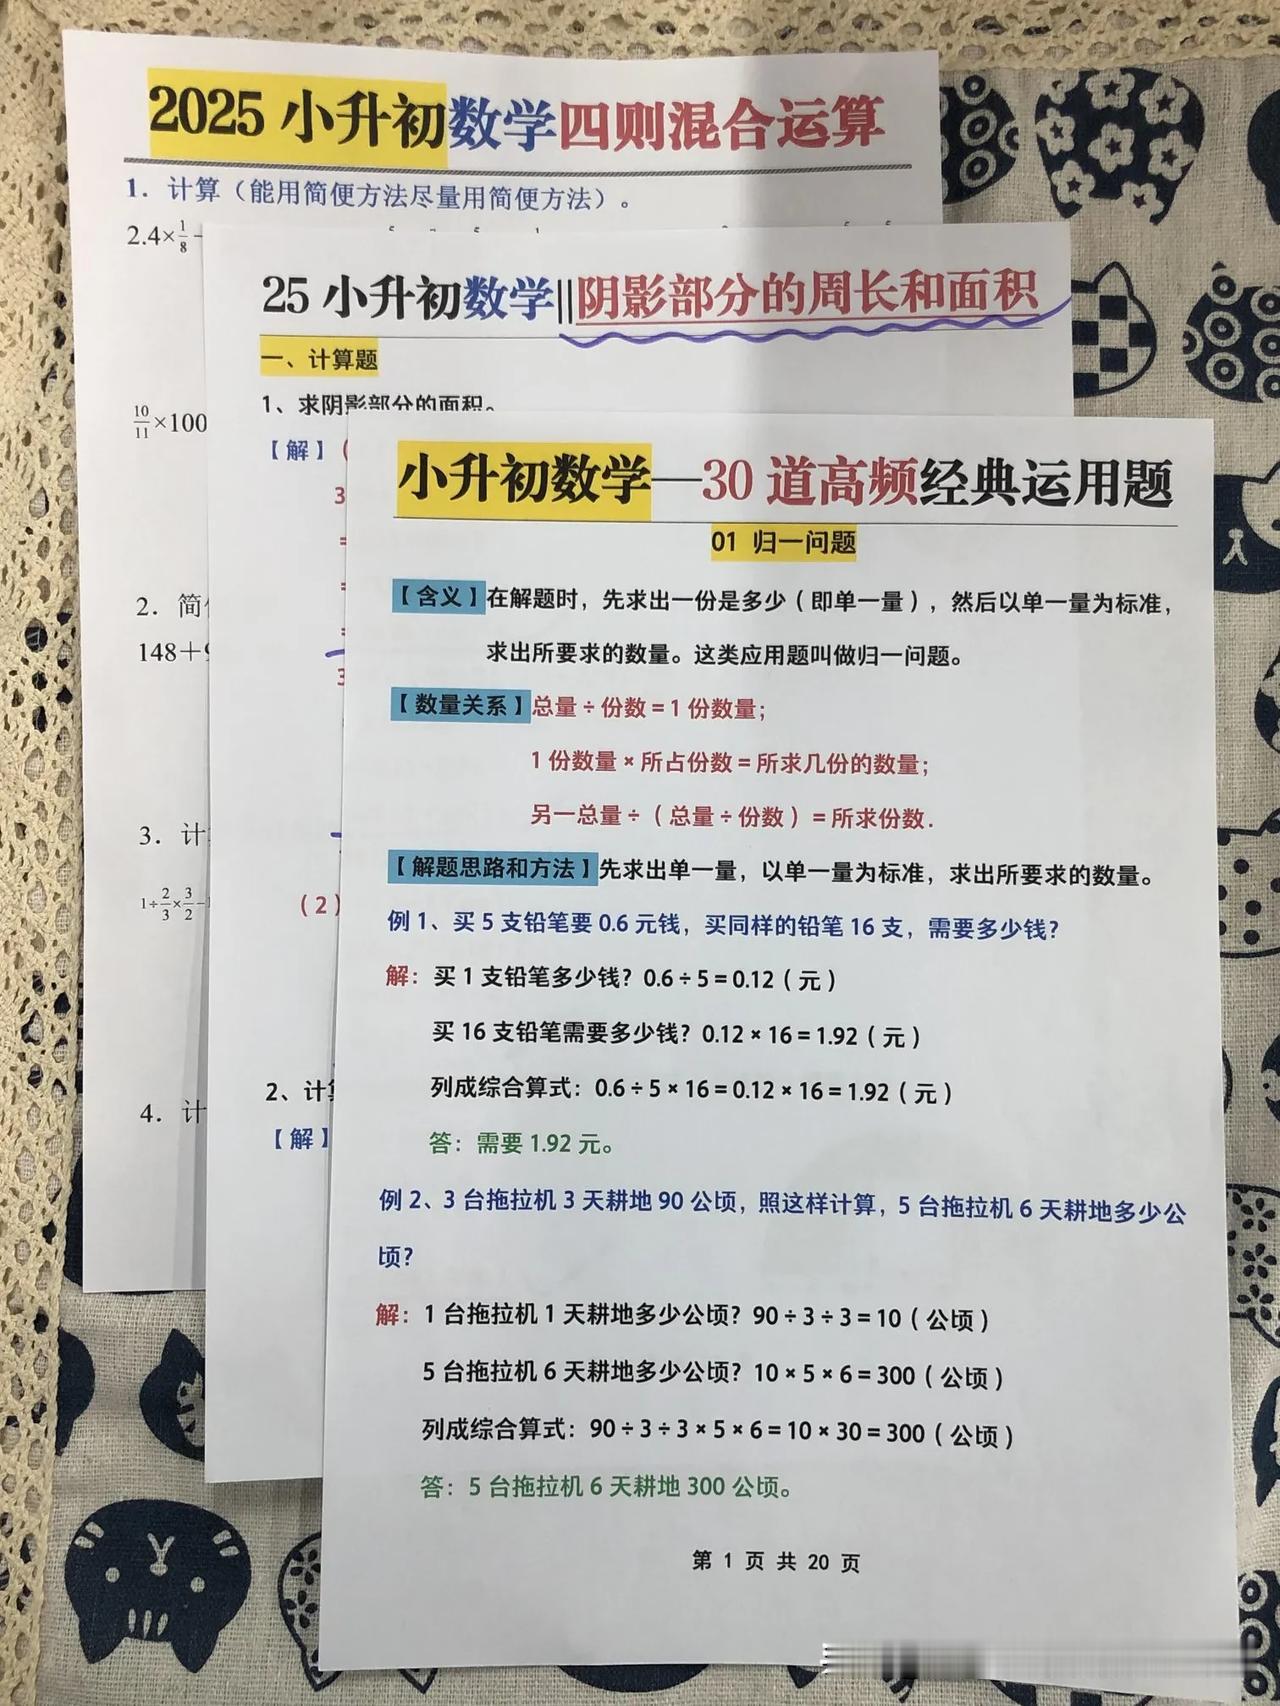 2025 小升初数学四则混合运算
1. 计算（能用简便方法尽量用简便方法）。
2.4×1/8
10/11×100
2. 简
148+
3. 计
1÷2/3×3/2-
4. 计
25 小升初数学||阴影部分的周长和面积
一、计算题
1、求阴影部分的面积。
【解】（
3
=
=
=
3
（2）
2、计
【解】
小升初数学—30 道高频经典运用题
01 归一问题
【含义】在解题时，先求出一份是多少（即单一量），然后以单一量为标准，
求出所要求的数量。这类应用题叫做归一问题。
【数量关系】总量÷份数=1份数量；
1份数量×所占份数=所求几份的数量；
另一总量÷（总量÷份数）=所求份数.
【解题思路和方法】先求出单一量，以单一量为标准，求出所要求的数量。
例 1、买 5 支铅笔要 0.6 元钱，买同样的铅笔 16 支，需要多少钱？
解：买 1 支铅笔多少钱？0.6÷5=0.12（元）
买 16 支铅笔需要多少钱？0.12×16=1.92（元）
列成综合算式：0.6÷5×16=0.12×16=1.92（元）
答：需要 1.92 元。
例 2、3 台拖拉机 3 天耕地 90 公顷，照这样计算，5 台拖拉机 6 天耕地多少公
顷？
解：1 台拖拉机 1 天耕地多少公顷？90÷3÷3=10（公顷）
5 台拖拉机 6 天耕地多少公顷？10×5×6=300（公顷）
列成综合算式：90÷3÷3×5×6=10×30=300（公顷）
答：5 台拖拉机 6 天耕地 300 公顷。
第 1 页 共 20 页